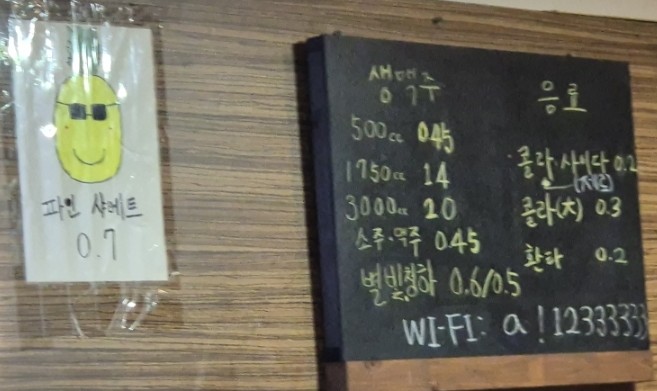 파인 샤베트
0.7
생맥주
500cc 0.45
1750cc 14
3000cc 20
소주·맥주 0.45
별빛청하 0.6/0.5
음료
콜라·사이다 0.2
(제로)
콜라(大) 0.3
환타 0.2
WI-FI: a!12333333